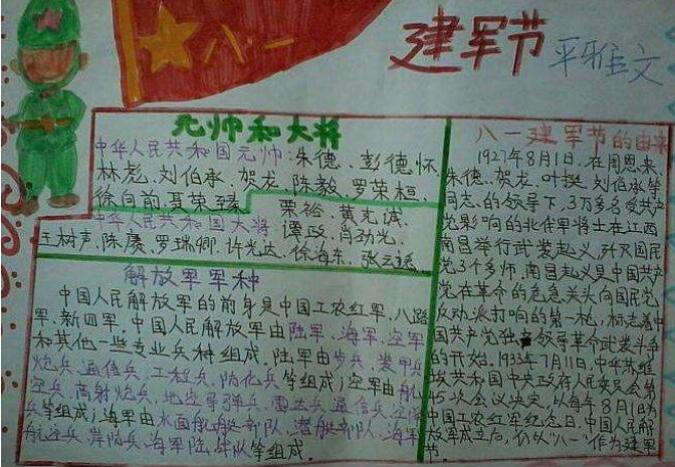 八一
建军节
平雅文
元帅和大将
中华人民共和国元帅:朱德、彭德怀、
林彪、刘伯承、贺龙、陈毅、罗荣桓、
徐向前、聂荣臻
中华人民共和国大将:粟裕、黄克诚、
谭政、肖劲光、
王树声、陈赓、罗瑞卿、许光达、徐海东、张云逸
解放军军种
中国人民解放军的前身是中国工农红军、八路
军、新四军。中国人民解放军由陆军、海军、空军
和其他一些专业兵种组成。陆军由步兵、装甲兵
炮兵、通信兵、工程兵、防化兵等组成;空军由航
空兵、高射炮兵、地空导弹兵、雷达兵、通信兵、空降
兵等组成;海军由水面舰艇部队、潜艇部队、海军
航空兵、岸防兵、海军陆战队等组成。
八一建军节的由来
1927年8月1日,在周恩来、
朱德、贺龙、叶挺、刘伯承等
同志的领导下,3万多名受共产
党影响的北伐军将士在江西
南昌举行武装起义,歼灭国民
党3个多师。南昌起义是中国共产
党在革命的危急关头向国民党
反动派打响的第一枪,标志着中
国共产党独立领导革命武装斗争
的开始。1933年7月11日,中华苏维
埃共和国中央政府人民委员会第
45次会议决定,以每年8月1日为
中国工农红军纪念日。中国人民解
放军成立后,仍以"八一"作为建军
节。